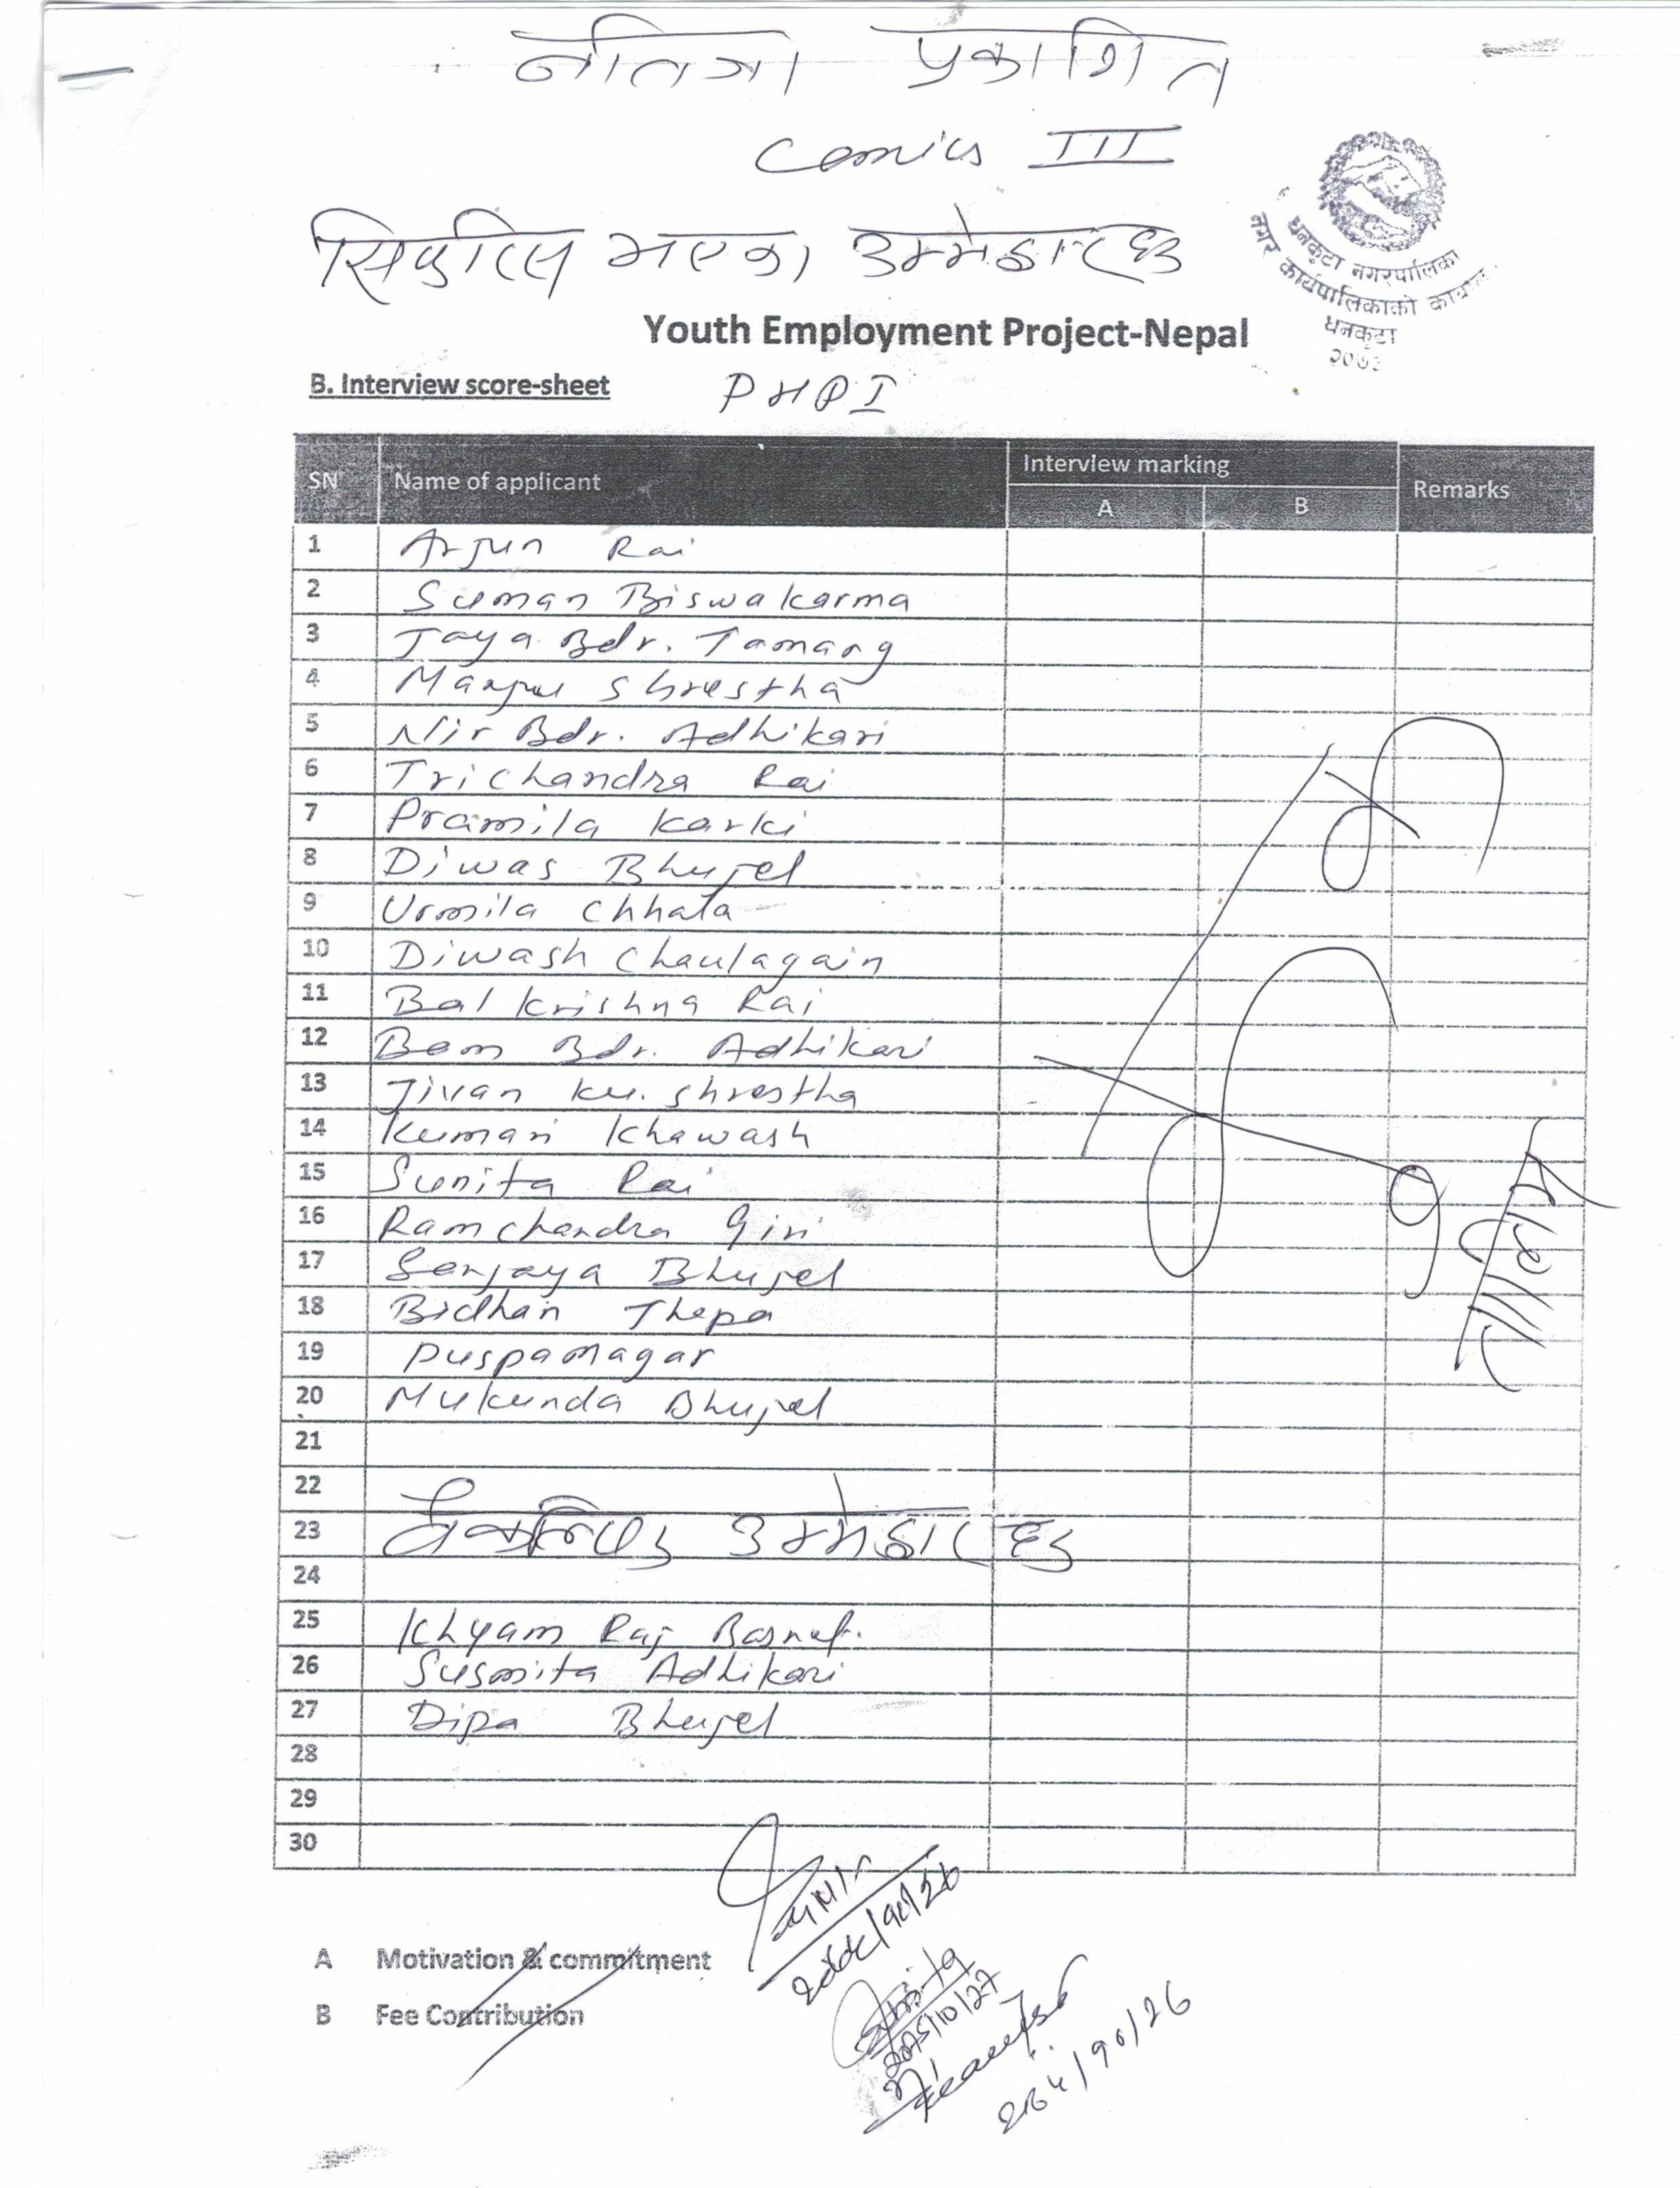 नतिजा प्रकाशित
comics III
सिफारिस भएका उम्मेद्वारहरु
धनकुटा नगरपालिका
नगर कार्यपालिकाको कार्यालय
धनकुटा
Youth Employment Project-Nepal
B. Interview score-sheet PHPI
SN Name of applicant Interview marking Remarks
A B
1 Arjun Rai
2 Suman Biswakarma
3 Jaya Bdr. Tamang
4 Manju Shrestha
5 Nir Bdr. Adhikari
6 Trichandra Rai
7 Pramila Karki
8 Diwas Bhujel
9 Urmila Chhata
10 Diwash Chaulagain
11 Bal krishna Rai
12 Bom Bdr. Adhikari
13 Jivan ku. Shrestha
14 Kumari Khawash
15 Sunita Rai
16 Ramchandra Giri
17 Sanjaya Bhujel
18 Bidhan Thapa
19 Puspa magar
20 Mukunda Bhujel
21
22
23 वैकल्पिक उम्मेद्वारहरु
24
25 Khyam Raj Basnet.
26 Susmita Adhikari
27 Dipa Bhujel
28
29
30
A Motivation & commitment
B Fee Contribution
2075/10/27